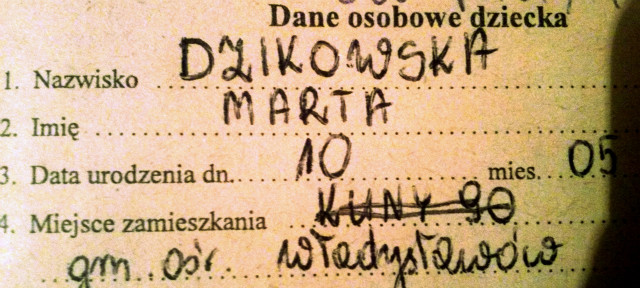 Dane osobowe dziecka
1. Nazwisko DZIKOWSKA
2. Imię MARTA
3. Data urodzenia dn. 10 mies. 05
4. Miejsce zamieszkania KUNY 90
gm. ośr. Władysławów